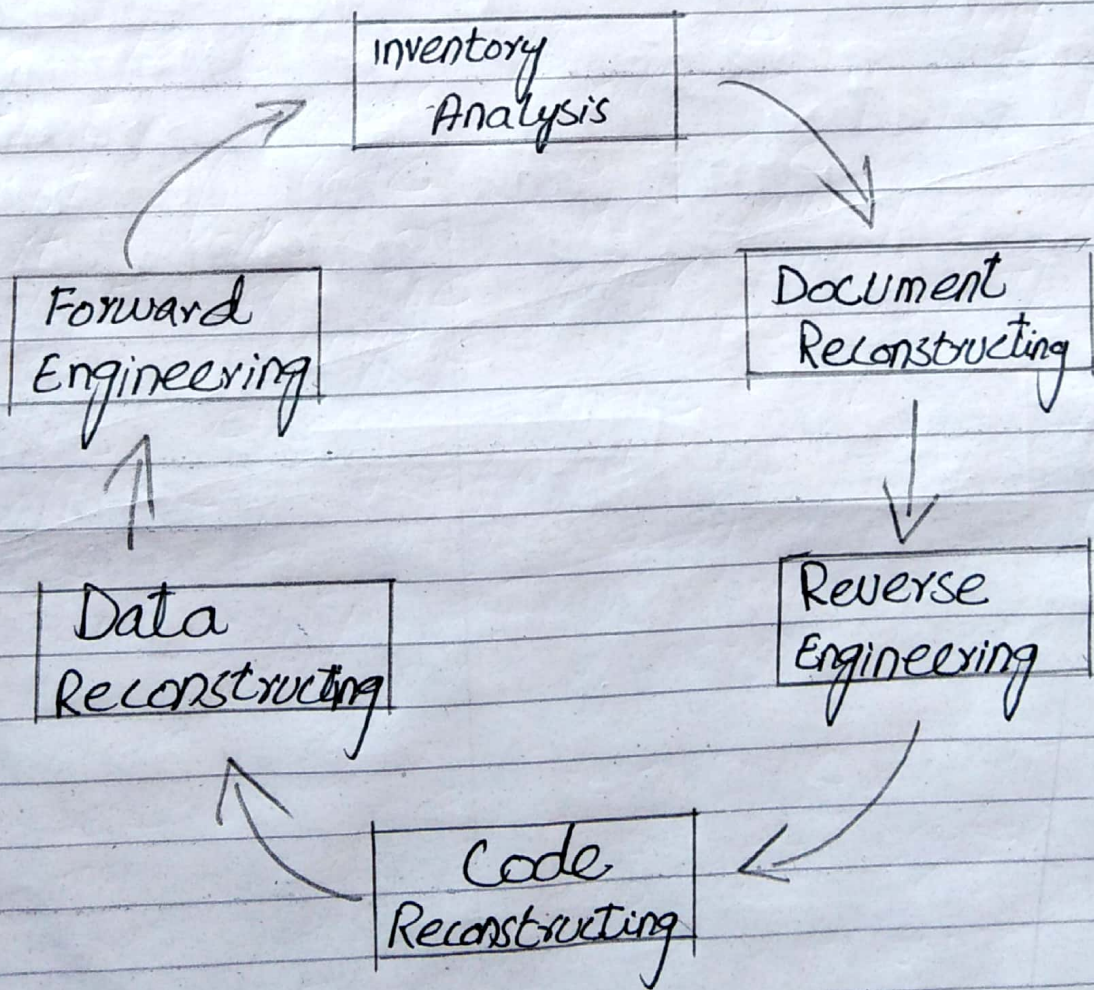 Inventory
Analysis
Document
Reconstructing
Reverse
Engineering
Code
Reconstructing
Data
Reconstructing
Forward
Engineering